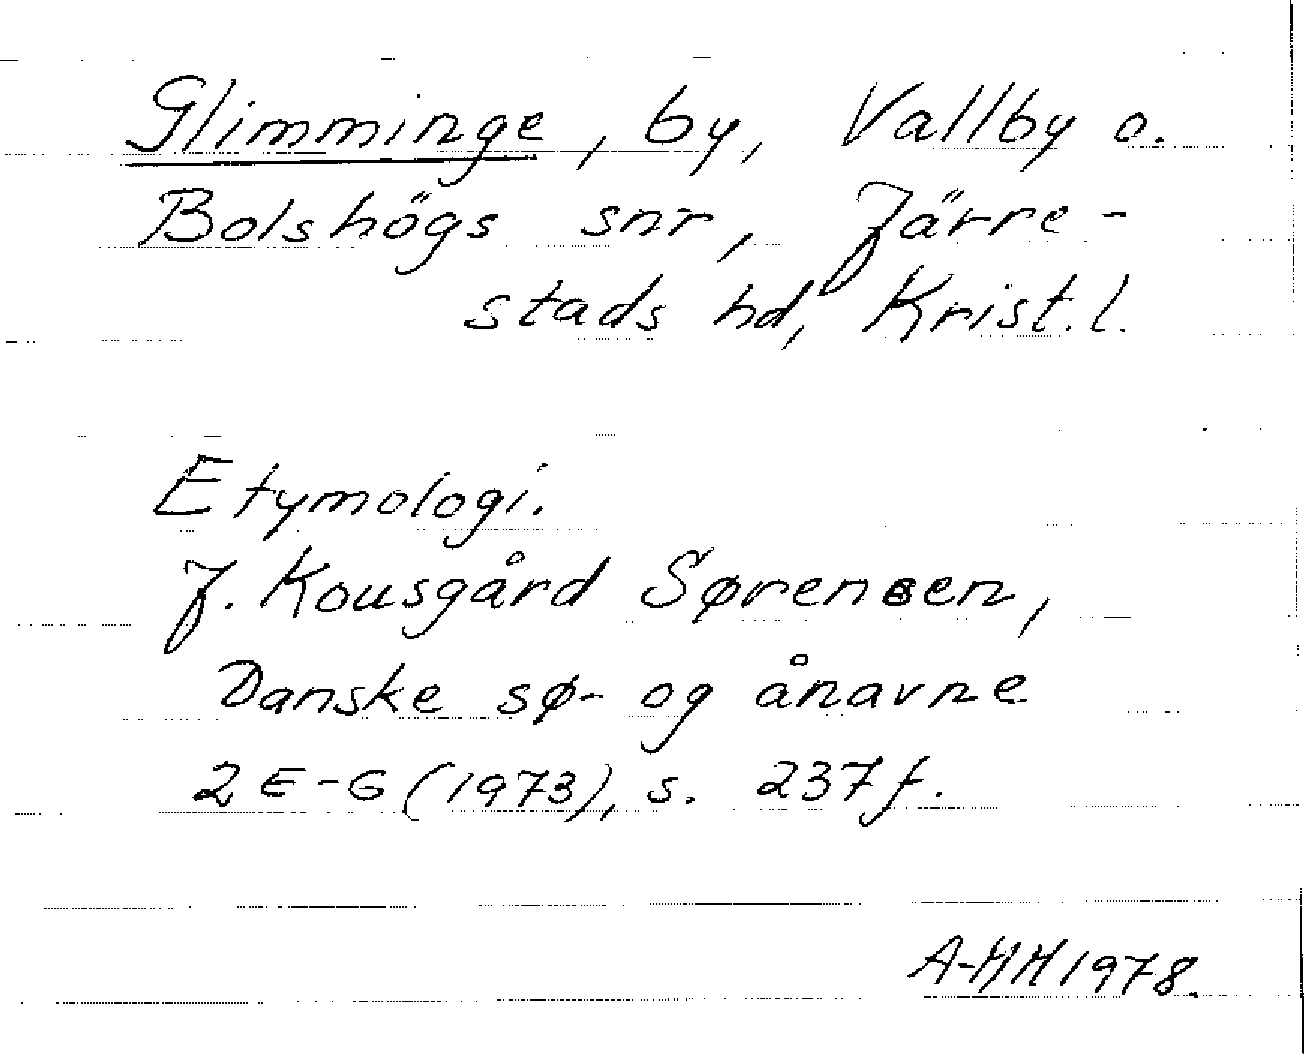 Glimminge, by, Vallby o.
Bolshögs snr, Järre-
stads hd, Krist. l.
Etymologi.
J. Kousgård Sørensen,
Danske sø- og ånavne
2 E-G (1973), s. 237 f.
A-HH 1978.